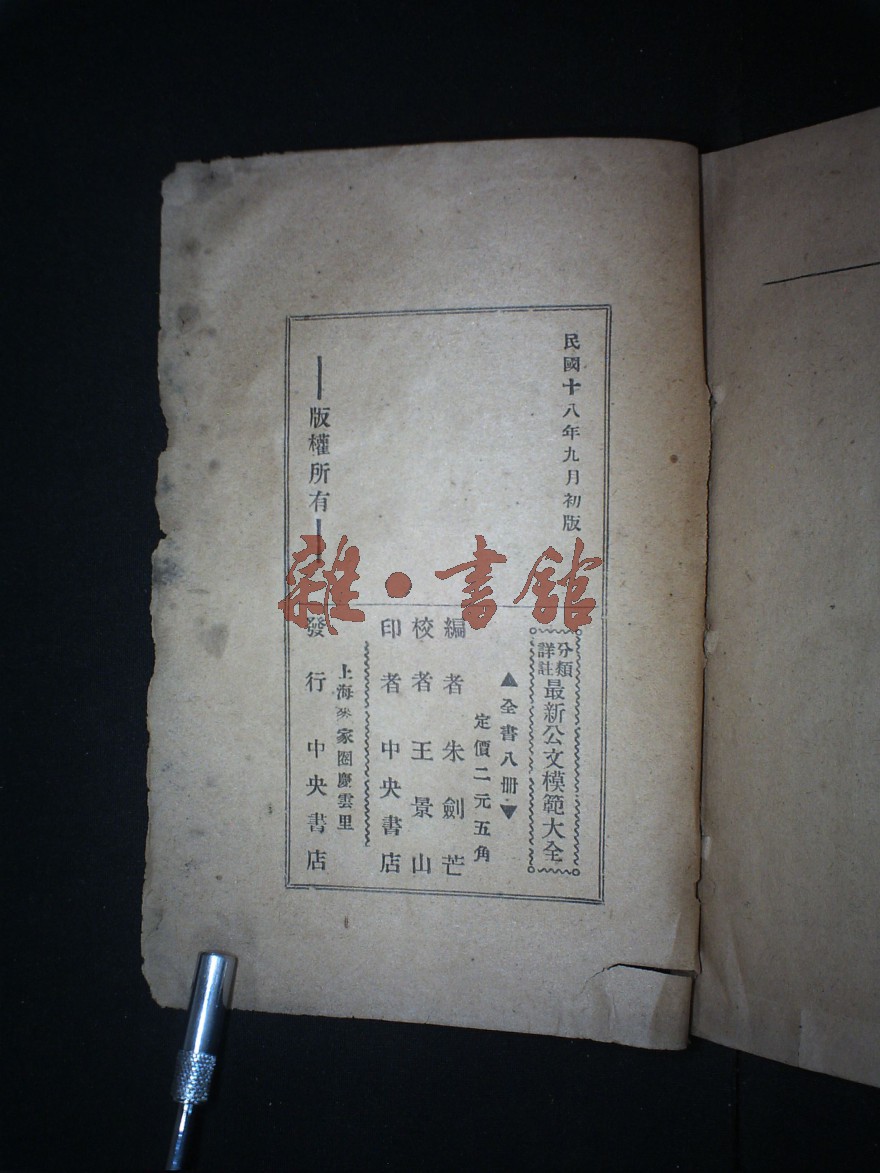 民國十八年九月初版
分類
詳註
最新公文模範大全
▲全書八册▼
定價二元五角
編者朱劍芒
校者王景山
印者中央書店
上海麥家圈慶雲里
發行中央書店
版權所有
雜·書館